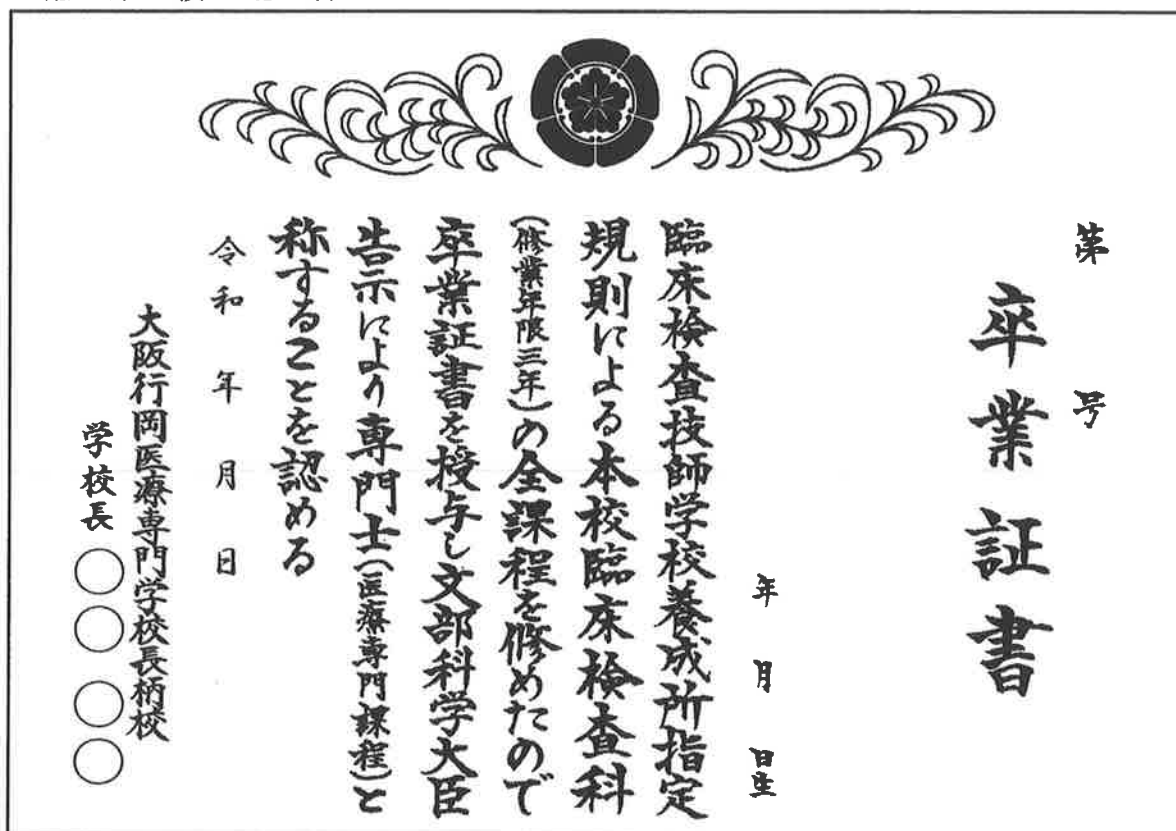 第 号
卒業証書
年 月 日生
臨床検査技師学校養成所指定
規則による本校臨床検査科
(修業年限三年)の全課程を修めたので
卒業証書を授与し文部科学大臣
告示により専門士(医療専門課程)と
称することを認める
令和 年 月 日
大阪行岡医療専門学校長柄校
学校長 〇〇 〇〇